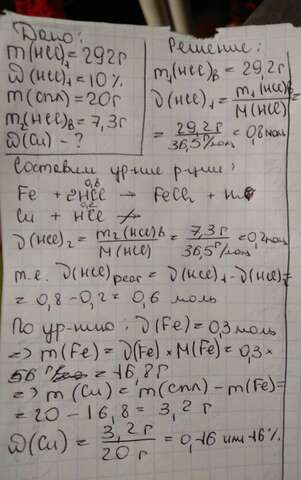 Дано:
m(HCl)₁ = 292г
ω(HCl)₁ = 10%
m(спл) = 20г
m₂(HCl)в = 7,3г
ω(Cu) - ?
Решение:
m₁(HCl)в = 29,2г
ν(HCl)₁ = m₁(HCl)в / M(HCl) =
= 29,2г / 36,5г/моль = 0,8моль
Составим ур-ние р-ции:
Fe + 2HCl → FeCl₂ + H₂
Cu + HCl ↛
ν(HCl)₂ = m₂(HCl)в / M(HCl) = 7,3г / 36,5г/моль = 0,2моль
т.е. ν(HCl)реаг = ν(HCl)₁ - ν(HCl)₂
= 0,8 - 0,2 = 0,6 моль
По ур-нию: ν(Fe) = 0,3 моль
=> m(Fe) = ν(Fe) × M(Fe) = 0,3 ×
56 г/моль = 16,8г
=> m(Cu) = m(спл) - m(Fe) =
= 20 - 16,8 = 3,2 г
ω(Cu) = 3,2г / 20г = 0,16 или 16%